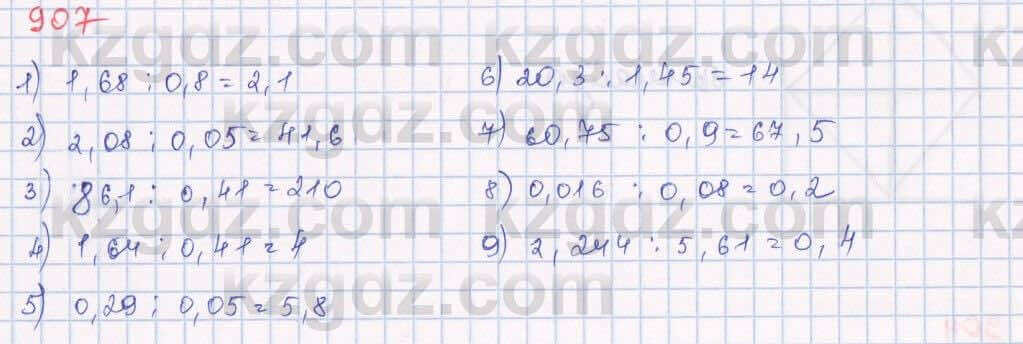 907
1) 1,68 : 0,8 = 2,1
2) 2,08 : 0,05 = 41,6
3) 86,1 : 0,41 = 210
4) 1,64 : 0,41 = 4
5) 0,29 : 0,05 = 5,8
6) 20,3 : 1,45 = 14
7) 60,75 : 0,9 = 67,5
8) 0,016 : 0,08 = 0,2
9) 2,244 : 5,61 = 0,4
kzgdz.com
kzgdz.com
kzgdz.com